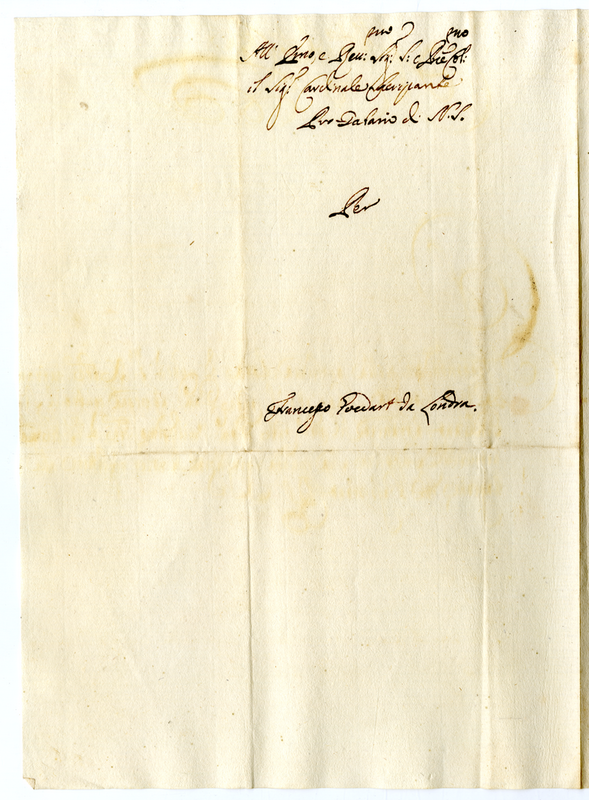 All' Emo e Reu: Sig: S: e Prē Col:
il Sig: Cardinale Sacripante
Pro-Datario di N. S.
Per
Francesco Goedart da Londra.